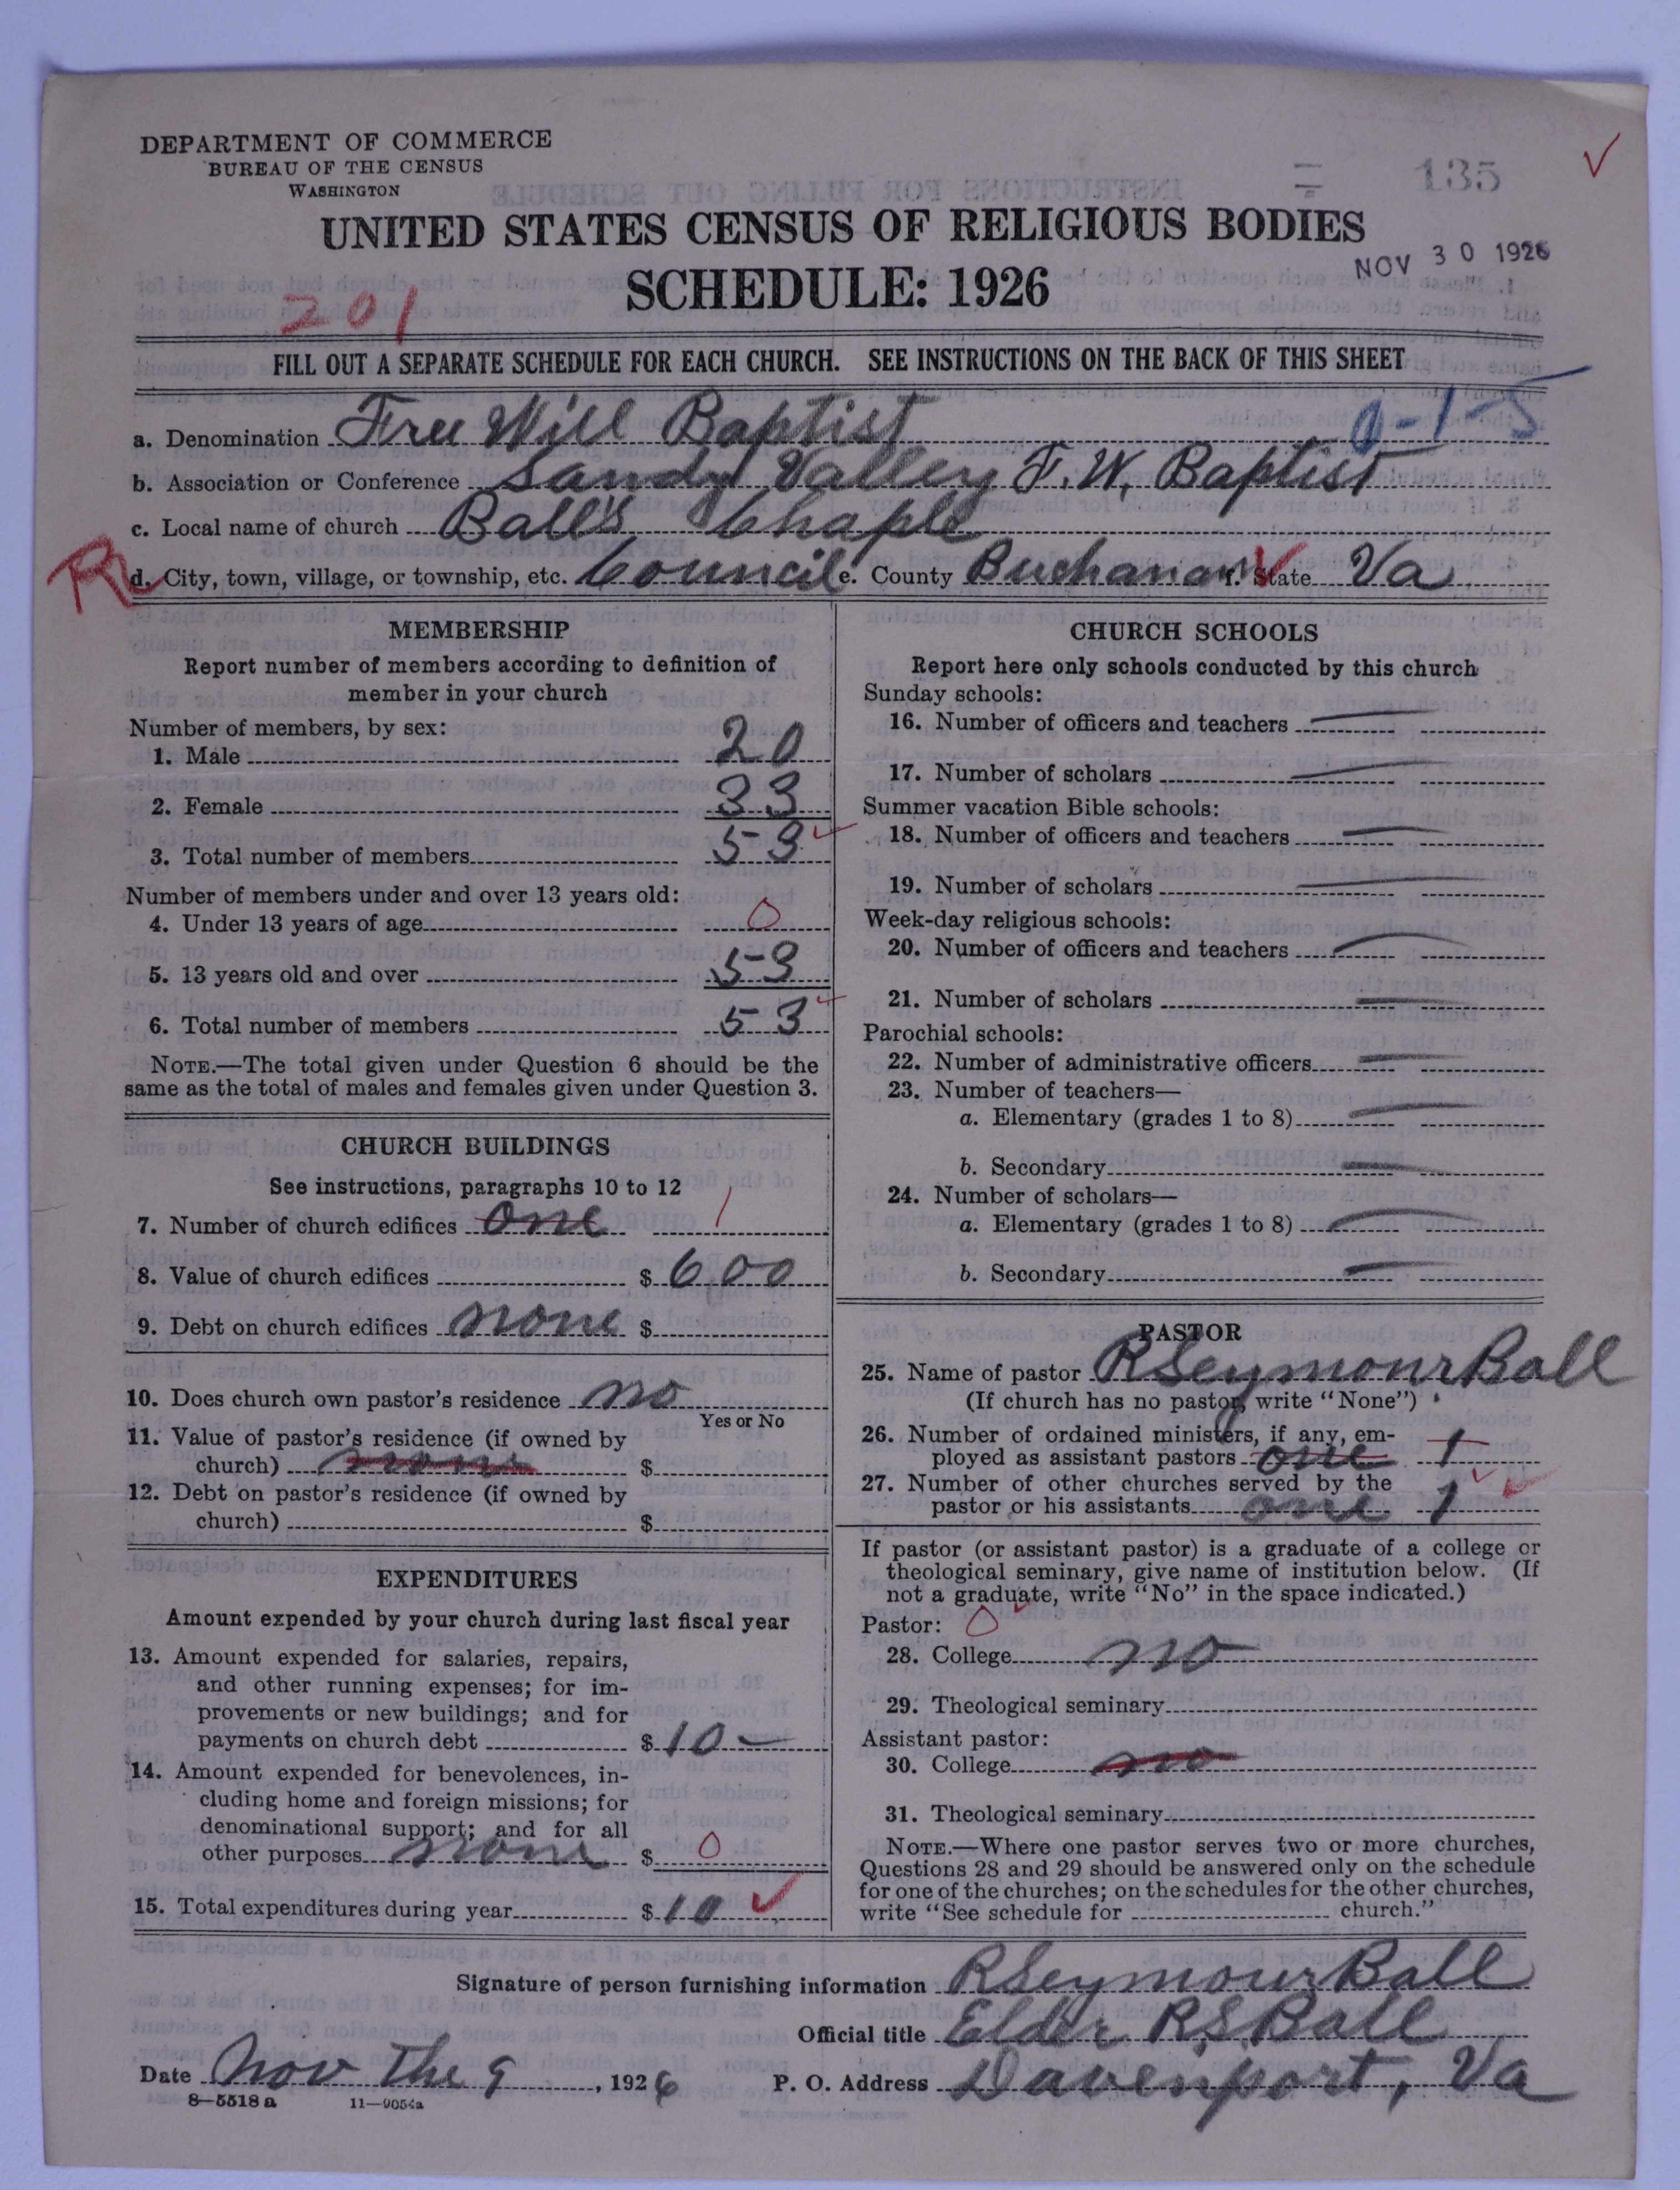 DEPARTMENT OF COMMERCE
BUREAU OF THE CENSUS
WASHINGTON
135
UNITED STATES CENSUS OF RELIGIOUS BODIES
SCHEDULE: 1926
NOV 30 1926
201
FILL OUT A SEPARATE SCHEDULE FOR EACH CHURCH. SEE INSTRUCTIONS ON THE BACK OF THIS SHEET
0-1-5
a. Denomination Free Will Baptist
b. Association or Conference Sandy Valley F. W. Baptist
c. Local name of church Ball's Chaple
R d. City, town, village, or township, etc. Council e. County Buchanan f. State Va
MEMBERSHIP
Report number of members according to definition of
member in your church
Number of members, by sex:
1. Male 20
2. Female 33
3. Total number of members 53
Number of members under and over 13 years old:
4. Under 13 years of age 0
5. 13 years old and over 53
6. Total number of members 53
NOTE.—The total given under Question 6 should be the
same as the total of males and females given under Question 3.
CHURCH BUILDINGS
See instructions, paragraphs 10 to 12
7. Number of church edifices one 1
8. Value of church edifices $ 600
9. Debt on church edifices none $
10. Does church own pastor's residence no
Yes or No
11. Value of pastor's residence (if owned by
church) none $
12. Debt on pastor's residence (if owned by
church) $
EXPENDITURES
Amount expended by your church during last fiscal year
13. Amount expended for salaries, repairs,
and other running expenses; for im-
provements or new buildings; and for
payments on church debt $ 10 —
14. Amount expended for benevolences, in-
cluding home and foreign missions; for
denominational support; and for all
other purposes none $ 0
15. Total expenditures during year $ 10
CHURCH SCHOOLS
Report here only schools conducted by this church
Sunday schools:
16. Number of officers and teachers —
17. Number of scholars —
Summer vacation Bible schools:
18. Number of officers and teachers —
19. Number of scholars —
Week-day religious schools:
20. Number of officers and teachers —
21. Number of scholars —
Parochial schools:
22. Number of administrative officers —
23. Number of teachers—
a. Elementary (grades 1 to 8) —
b. Secondary —
24. Number of scholars—
a. Elementary (grades 1 to 8) —
b. Secondary —
PASTOR
25. Name of pastor R Seymour Ball
(If church has no pastor, write "None")
26. Number of ordained ministers, if any, em-
ployed as assistant pastors one 1
27. Number of other churches served by the
pastor or his assistants one 1
If pastor (or assistant pastor) is a graduate of a college or
theological seminary, give name of institution below. (If
not a graduate, write "No" in the space indicated.)
Pastor: 0
28. College no
29. Theological seminary
Assistant pastor:
30. College no
31. Theological seminary
NOTE.—Where one pastor serves two or more churches,
Questions 28 and 29 should be answered only on the schedule
for one of the churches; on the schedules for the other churches,
write "See schedule for church."
Signature of person furnishing information R Seymour Ball
Official title Elder R S Ball
Date Nov the 9, 1926 P. O. Address Davenport, Va
8—5518 a 11—9054a